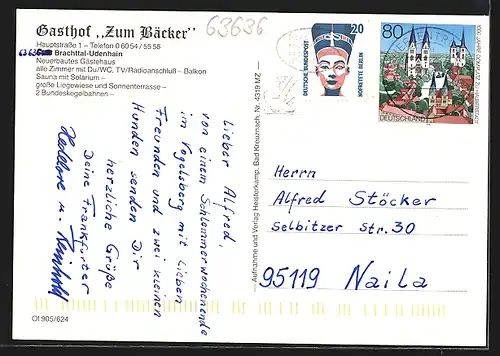 Gasthof „Zum Bäcker"
63636
Hauptstraße 1 – Telefon 0 60 54 / 55 58
63636 Brachttal-Udenhain
Neuerbautes Gästehaus
alle Zimmer mit Du/WC, TV/Radioanschluß – Balkon
Sauna mit Solarium –
große Liegewiese und Sonnenterrasse –
2 Bundeskegelbahnen –
Lieber Alfred,
von einem Schlemmerwochenende
im Vogelsberg mit lieben
Freunden und zwei kleinen
Hunden senden Dir
herzliche Grüße
Deine Frankfurter
Hedore u. Reinhold
Of 905/624
— Aufnahme und Verlag Heisterkamp, Bad Kreuznach, Nr. 4319 MZ —
DEUTSCHE BUNDESPOST
20
NOFRETETE BERLIN
80
DEUTSCHLAND
1000 JAHRE DOMPLATZ ZU HALBERSTADT
Herrn
Alfred Stöcker
Selbitzer Str. 30
95119 Naila